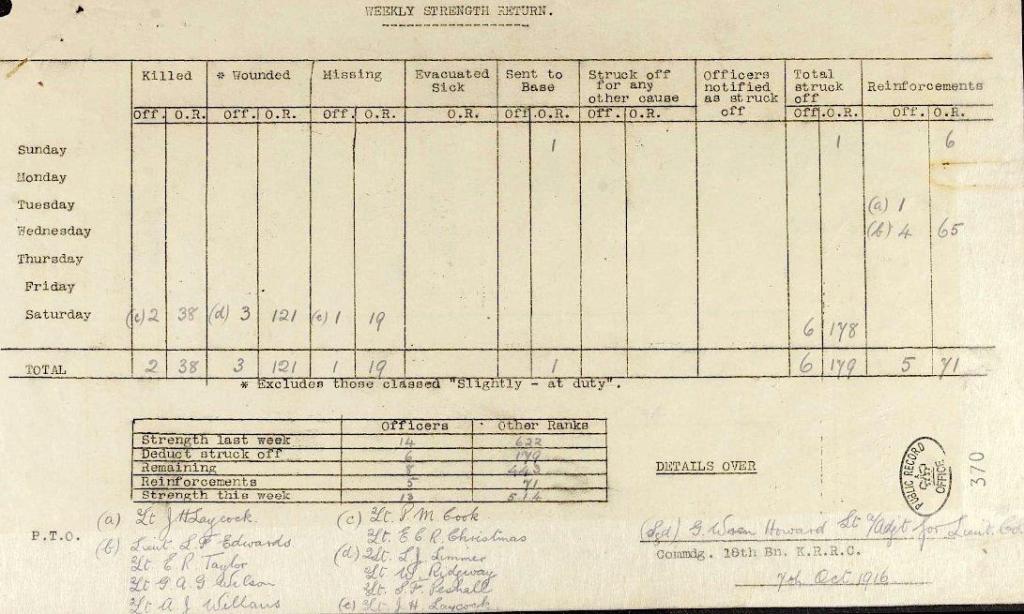 WEEKLY STRENGTH RETURN.
Killed * Wounded Missing Evacuated Sick Sent to Base Struck off for any other cause Officers notified as struck off Total struck off Reinforcements
Off. O.R. Off. O.R. Off. O.R. O.R. Off. O.R. Off. O.R. Off. O.R. Off. O.R.
Sunday 1 1 6
Monday
Tuesday (a) 1
Wednesday (b) 4 65
Thursday
Friday
Saturday (c) 2 38 (d) 3 121 (e) 1 19 6 178
TOTAL 2 38 3 121 1 19 1 6 179 5 71
* Excludes those classed "Slightly - at duty".
Officers Other Ranks
Strength last week 14 622
Deduct struck off 6 179
Remaining 8 443
Reinforcements 5 71
Strength this week 13 514
DETAILS OVER
PUBLIC RECORD OFFICE
370
P.T.O.
(a) Lt J H Laycock.
(b) Lieut. L. F. Edwards
Lt E R Taylor
Lt G. A. G Wilson
Lt A J Willans
(c) Lt. P M Cook
Lt. E C R Christmas
(d) 2Lt. L J Limmer
Lt W. Ridgway
Lt. S. F. Peshall
(e) Lt J. H. Laycock
(Sgd) G. Howard Lt A/Adjt for Lieut. Col
Commdg. 18th Bn. K.R.R.C.
7th Oct 1916